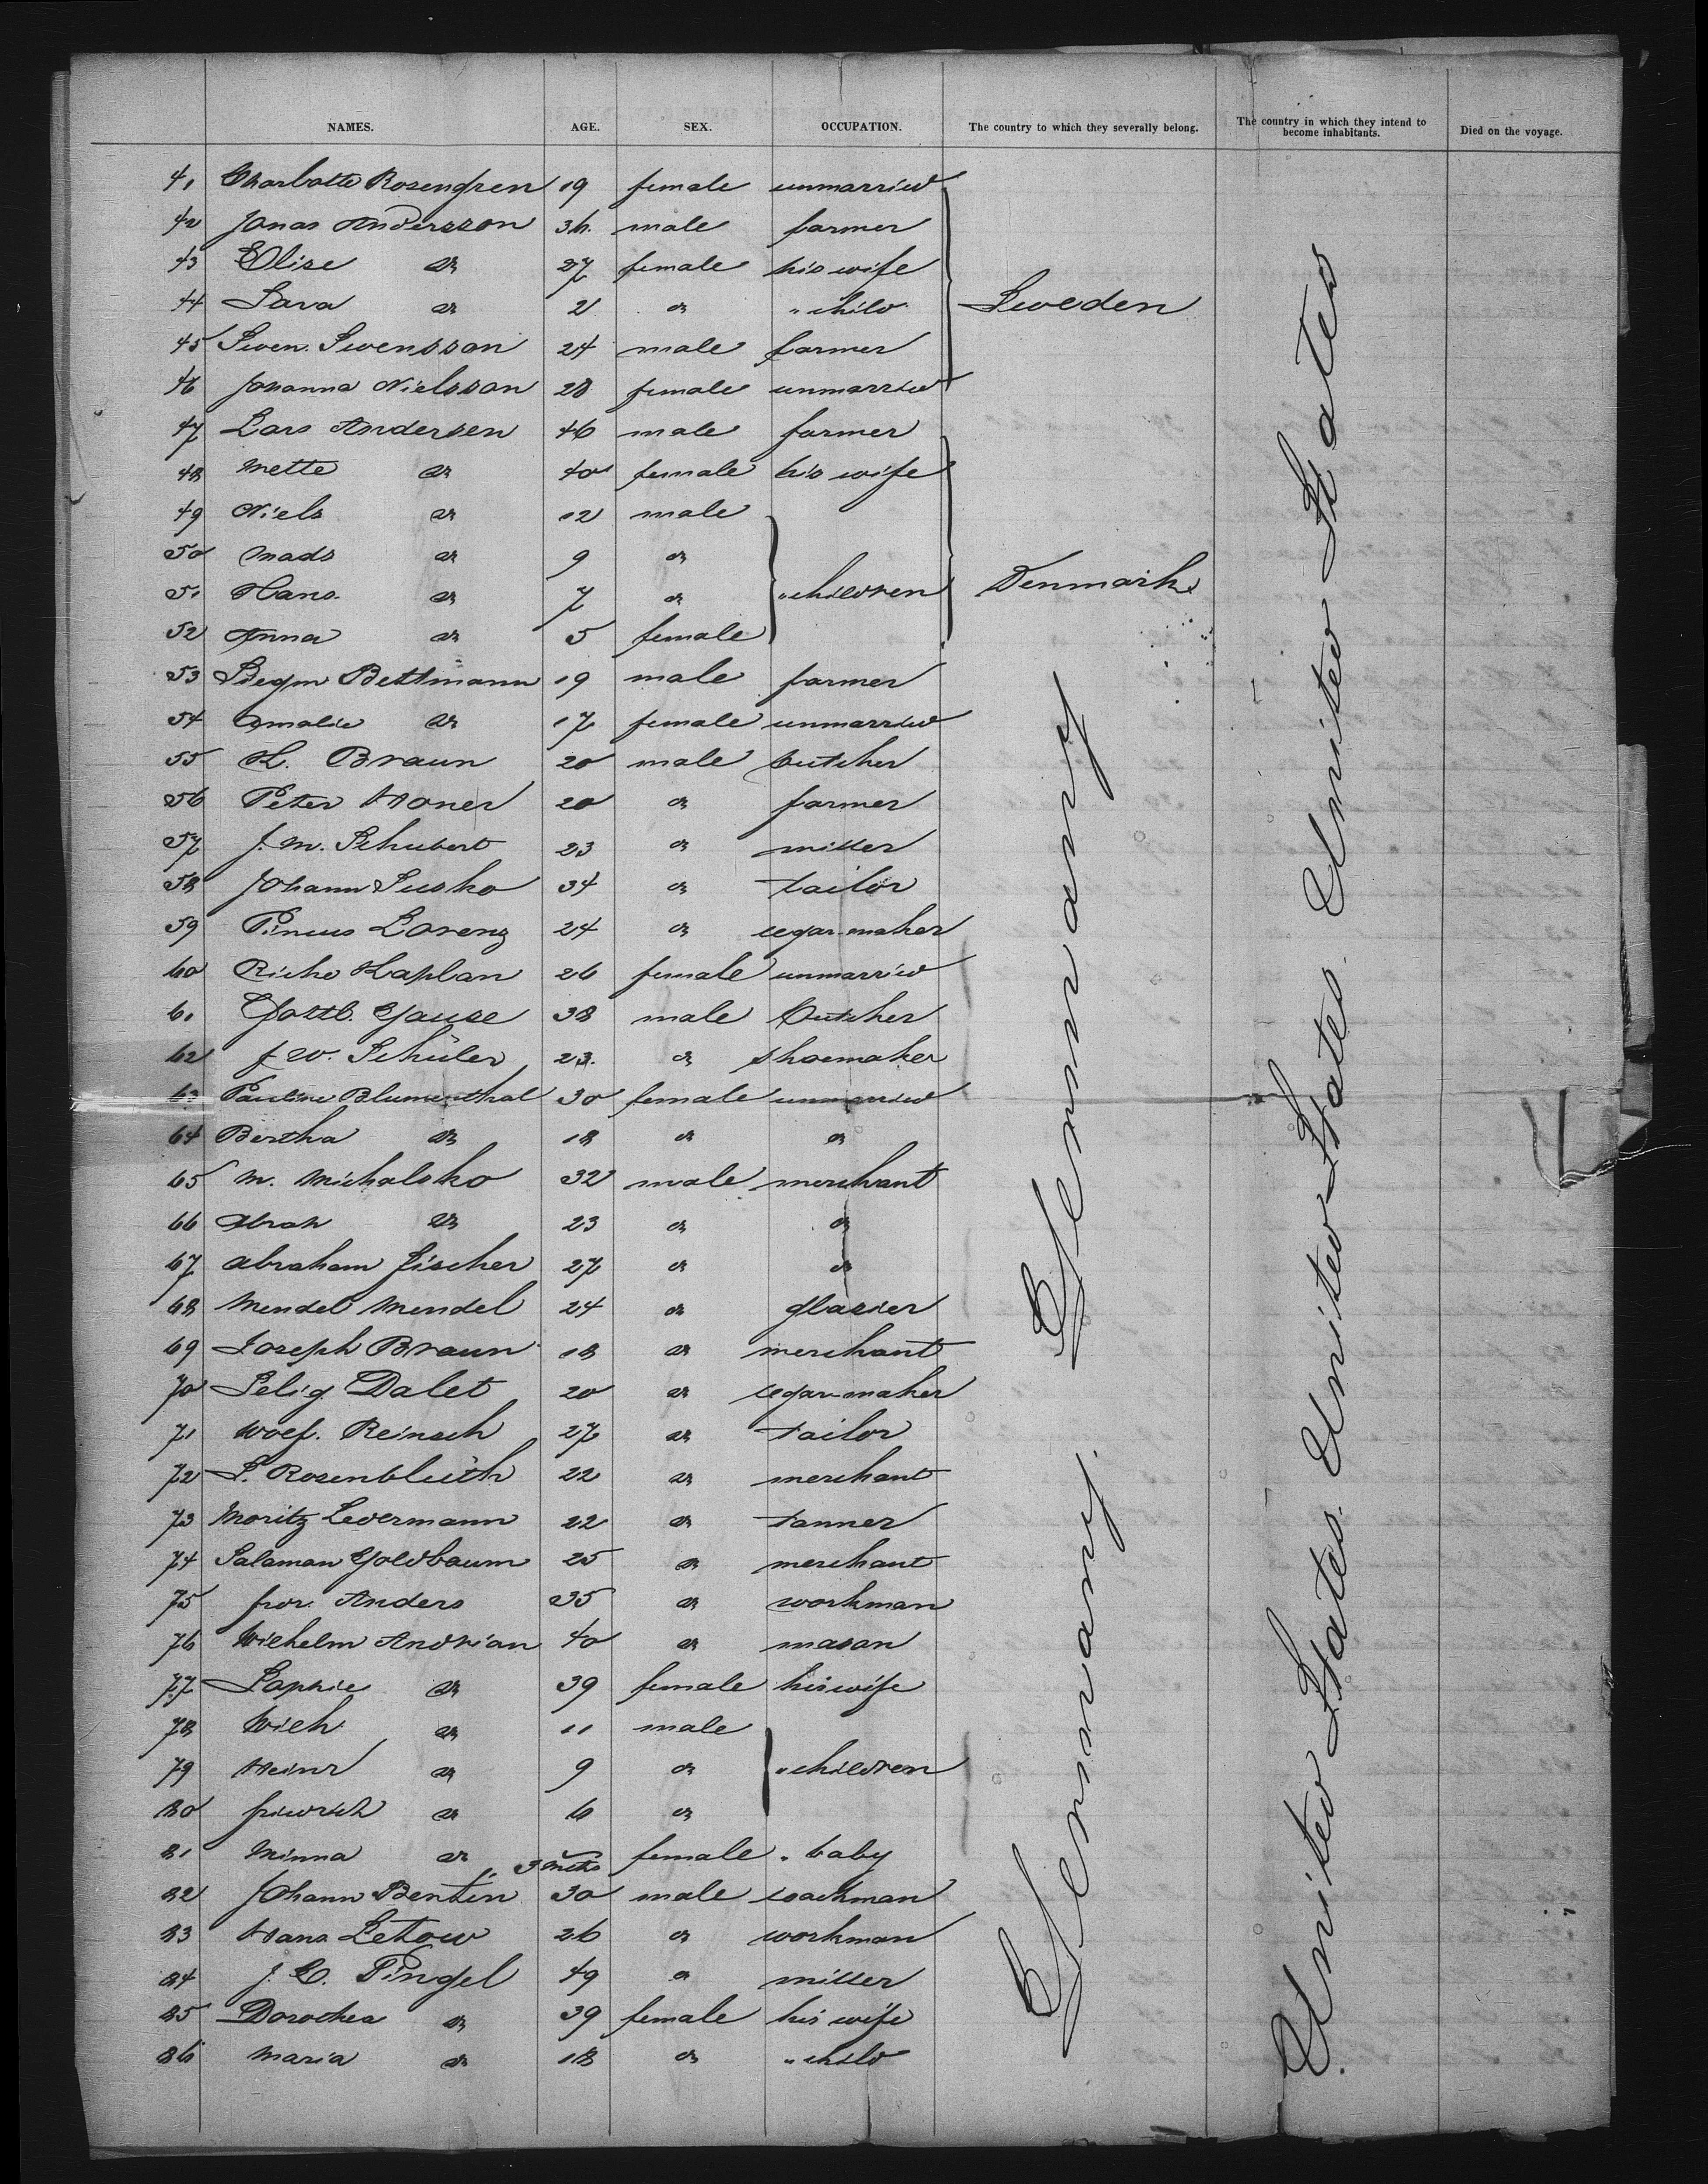 NAMES. AGE. SEX. OCCUPATION. The country to which they severally belong. The country in which they intend to become inhabitants. Died on the voyage.
41 Charlotte Rosengren 19 female unmarried
42 Jonas Andersson 36. male farmer
43 Elise do 27 female his wife
44 Sara do 2 do " child Sweden
45 Swen. Swensson 24 male farmer
46 Johanna Nielsson 28 female unmarried
47 Lars Andersen 46 male farmer
48 Mette do 40 female his wife
49 Niels do 12 male
50 Mads do 9 do
51 Hans. do 7 do " children Denmark
52 Anna do 5 female
53 Siegm Bettmann 19 male farmer
54 Amalie do 17 female unmarried
55 H. Braun 20 male butcher
56 Peter Honer 20 do farmer
57 J. M. Schubert 23 do miller
58 Johann Susko 34 do tailor
59 Pincus Lorenz 24 do cegar-maker
60 Ricke Kaplan 26 female unmarried
61 Gottl. Gause 38 male butcher
62 F. W. Schüler 23. do shoemaker
63 Pauline Blumenthal 30 female unmarried
64 Bertha do 18 do do
65 M. Michalsko 32 male merchant
66 Abrah do 23 do do
67 Abraham Fischer 27 do do
68 Mendel Mendel 24 do glasier
69 Joseph Braun 18 do merchant
70 Selig Dalet 20 do cegar-maker
71 Woef. Reinsch 27 do tailor
72 S. Rosenblüth 22 do merchant
73 Moritz Levermann 22 do tanner
74 Salaman Goldbaum 25 do merchant
75 Frdr. Anders 35 do workman
76 Wilhelm Andrian 40 do mason
77 Sophie do 39 female his wife
78 Wilh do 11 male
79 Heinr do 9 do " children
80 Friedrich do 6 do
81 Minna do 3 mths female " baby
82 Johann Bentin 30 male coachman
83 Hans Letow 26 do workman
84 J. C. Pingel 49 do miller
85 Dorothea do 39 female his wife
86 Maria do 18 do " child
Germany. Germany
United States. United States. United States